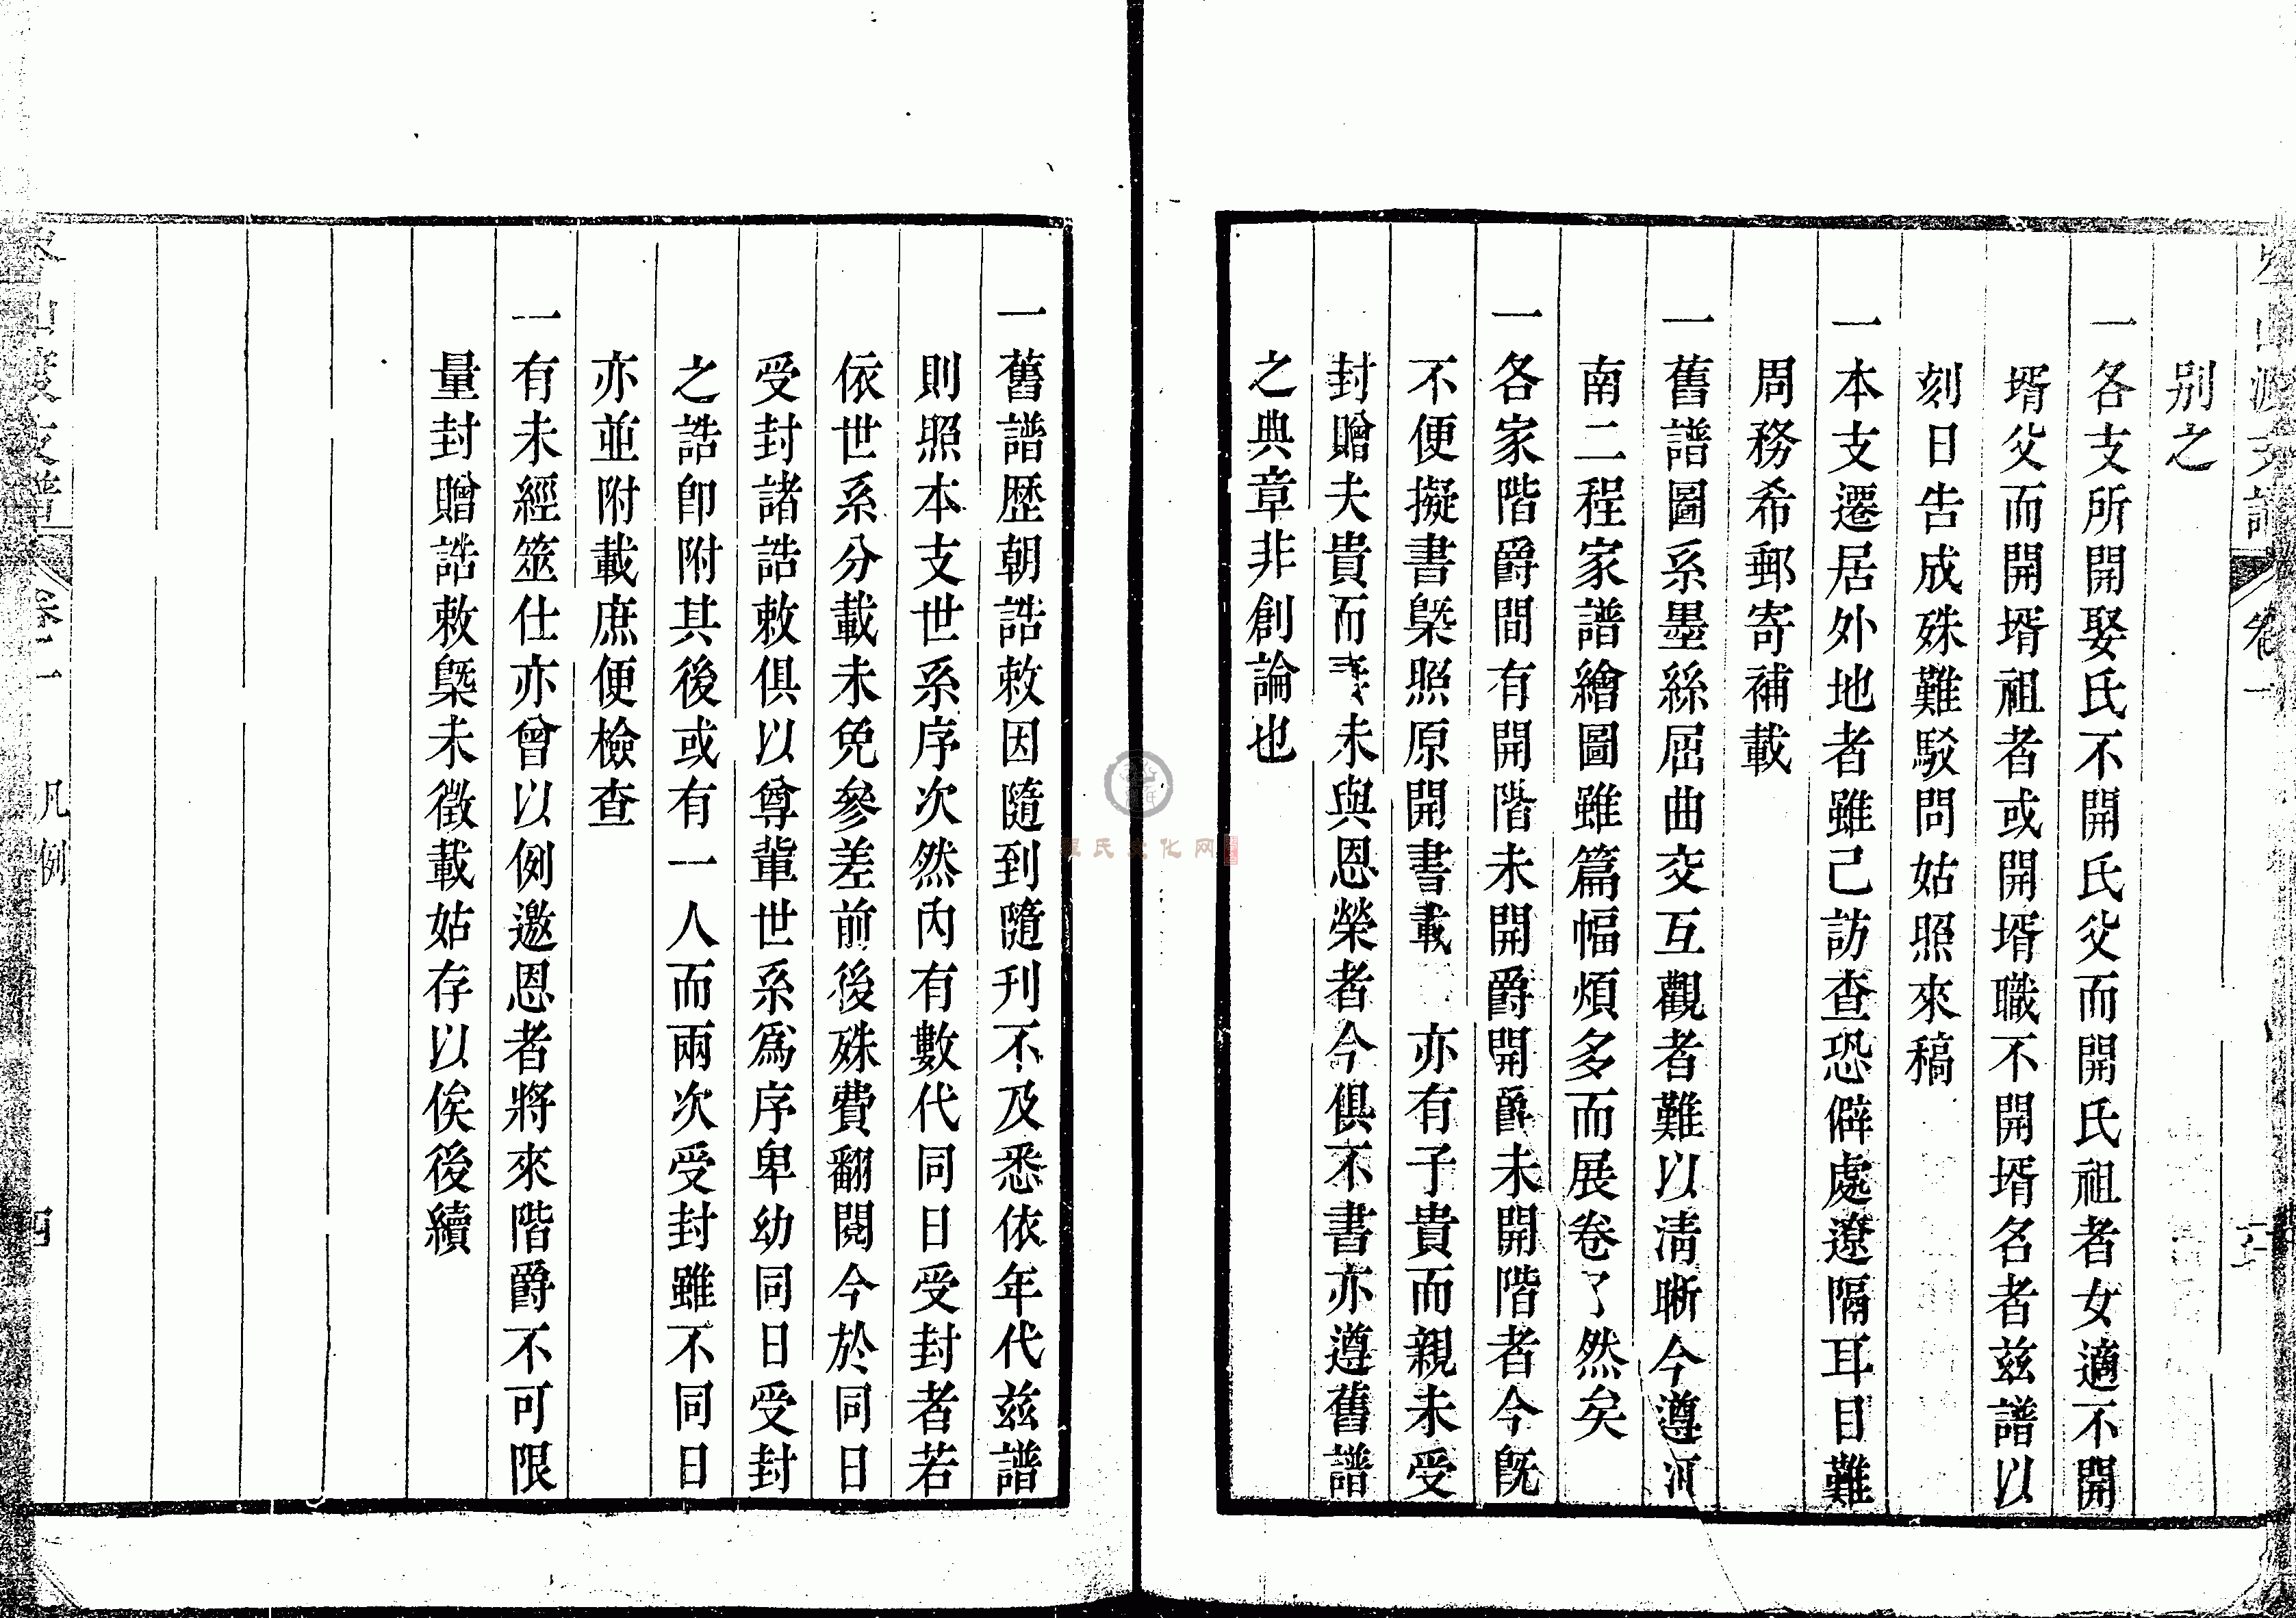 別之
一各支所開娶氏不開氏父而開氏祖者女適不開
壻父而開壻祖者或開壻職不開壻名者兹譜以
刻日告成殊難駁問姑照來稿
一本支遷居外地者雖己訪查恐僻處遼隔耳目難
周務希郵寄補載
一舊譜圖系墨絲屈曲交互觀者難以淸晰今遵河
南二程家譜繪圖雖篇幅煩多而展卷了然矣
一各家階爵間有開階未開爵開爵未開階者今旣
不便擬書槩照原開書載 亦有子貴而親未受
封贈夫貴而未與恩榮者今俱不書亦遵舊譜
之典章非創論也
一舊譜歷朝誥敕因隨到隨刊不及悉依年代兹譜
則照本支世系序次然內有數代同日受封者若
依世系分載未免參差前後殊費翻閱今於同日
受封諸誥敕俱以尊輩世系爲序卑幼同日受封
之誥卽附其後或有一人而兩次受封雖不同日
亦並附載庶便檢查
一有未經筮仕亦曾以例邀恩者將來階爵不可限
量封贈誥敕槩未徵載姑存以俟後續
支譜
凡例
四
程氏文化网